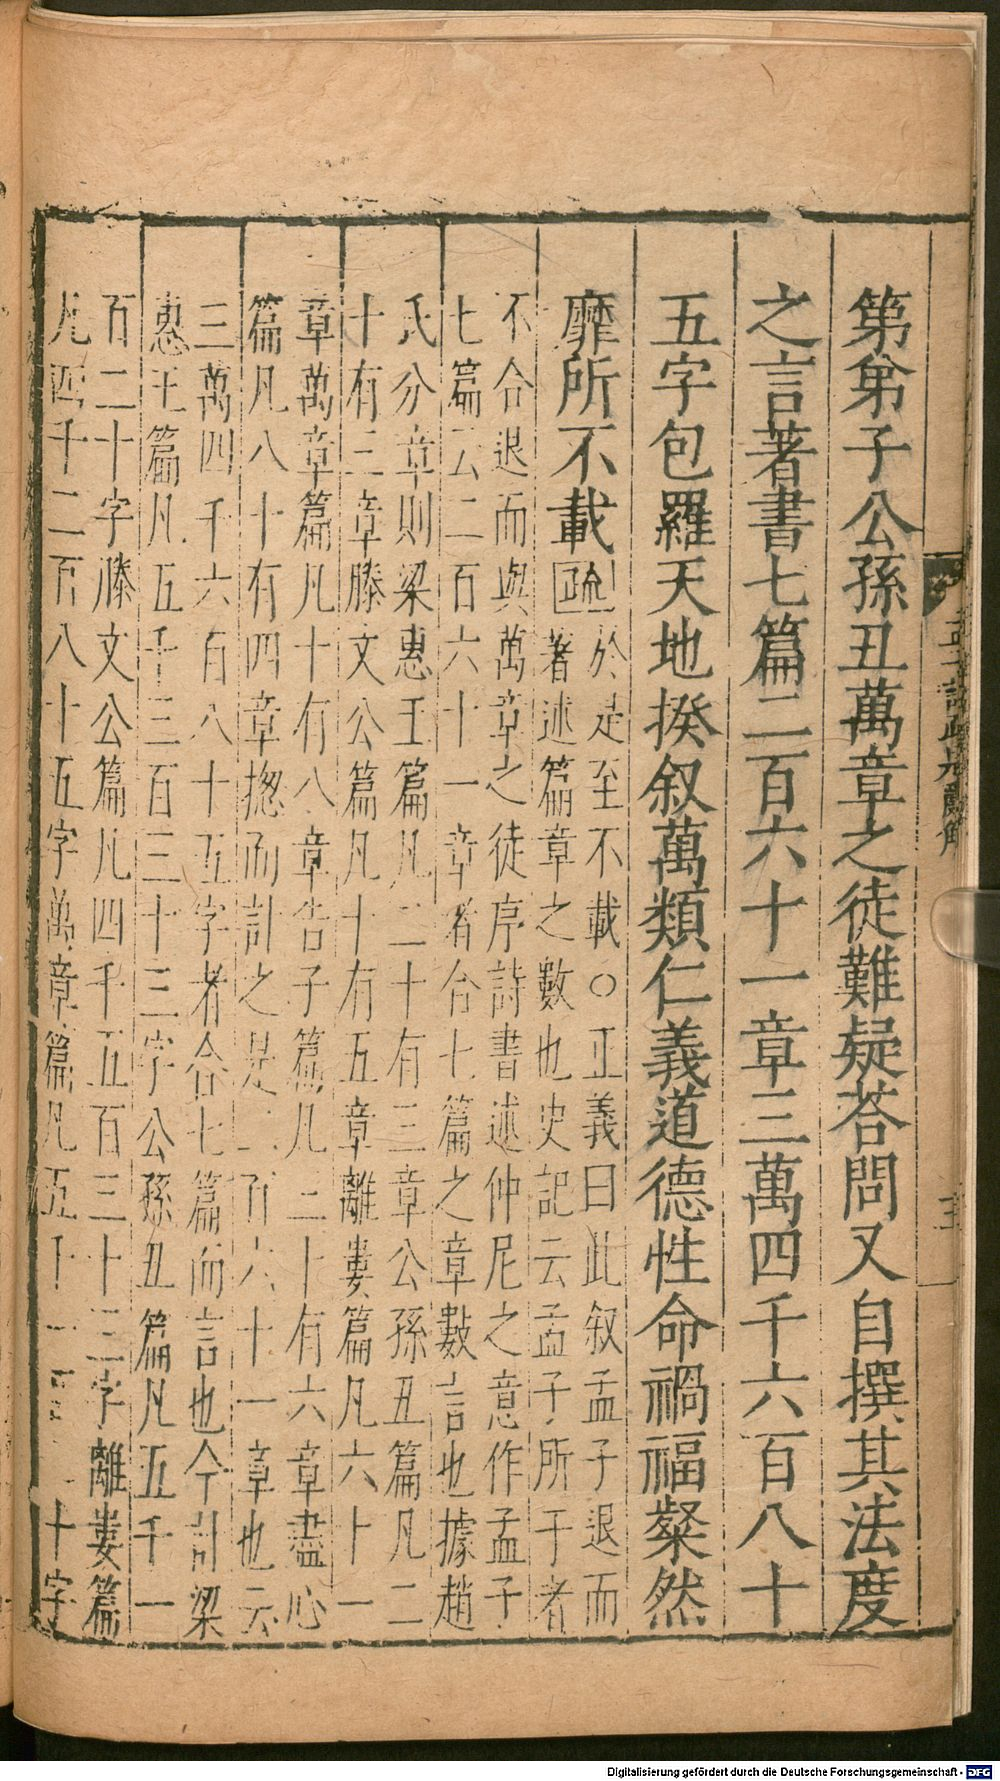 孟子註疏題辭解
五
第弟子公孫丑萬章之徒難疑荅問又自撰其法度
之言著書七篇二百六十一章三萬四千六百八十
五字包羅天地揆叙萬類仁義道德性命禍福粲然
靡所不載疏於是至不載○正義曰此叙孟子退而
著述篇章之數也史記云孟子所干者
不合退而與萬章之徒序詩書述仲尼之意作孟子
七篇云二百六十一章者合七篇之章數言也據趙
氏分章則梁惠王篇凡二十有三章公孫丑篇凡二
十有三章滕文公篇凡十有五章離婁篇凡六十一
章萬章篇凡十有八章告子篇凡二十有六章盡心
篇凡八十有四章揔而計之是二百六十一章也云
三萬四千六百八十五字者合七篇而言也今計梁
惠王篇凡五千三百三十三字公孫丑篇凡五千一
百二十字滕文公篇凡四千五百三十三字離婁篇
凡四千二百八十五字萬章篇凡五千一百二十字
Digitalisierung gefördert durch die Deutsche Forschungsgemeinschaft - DFG